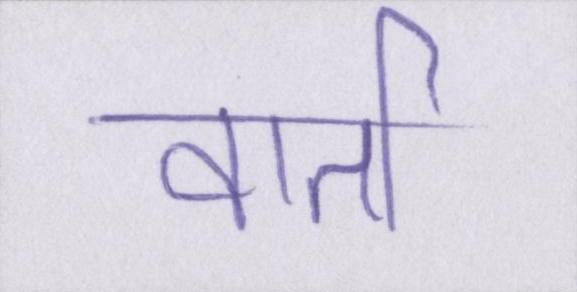 वार्ता